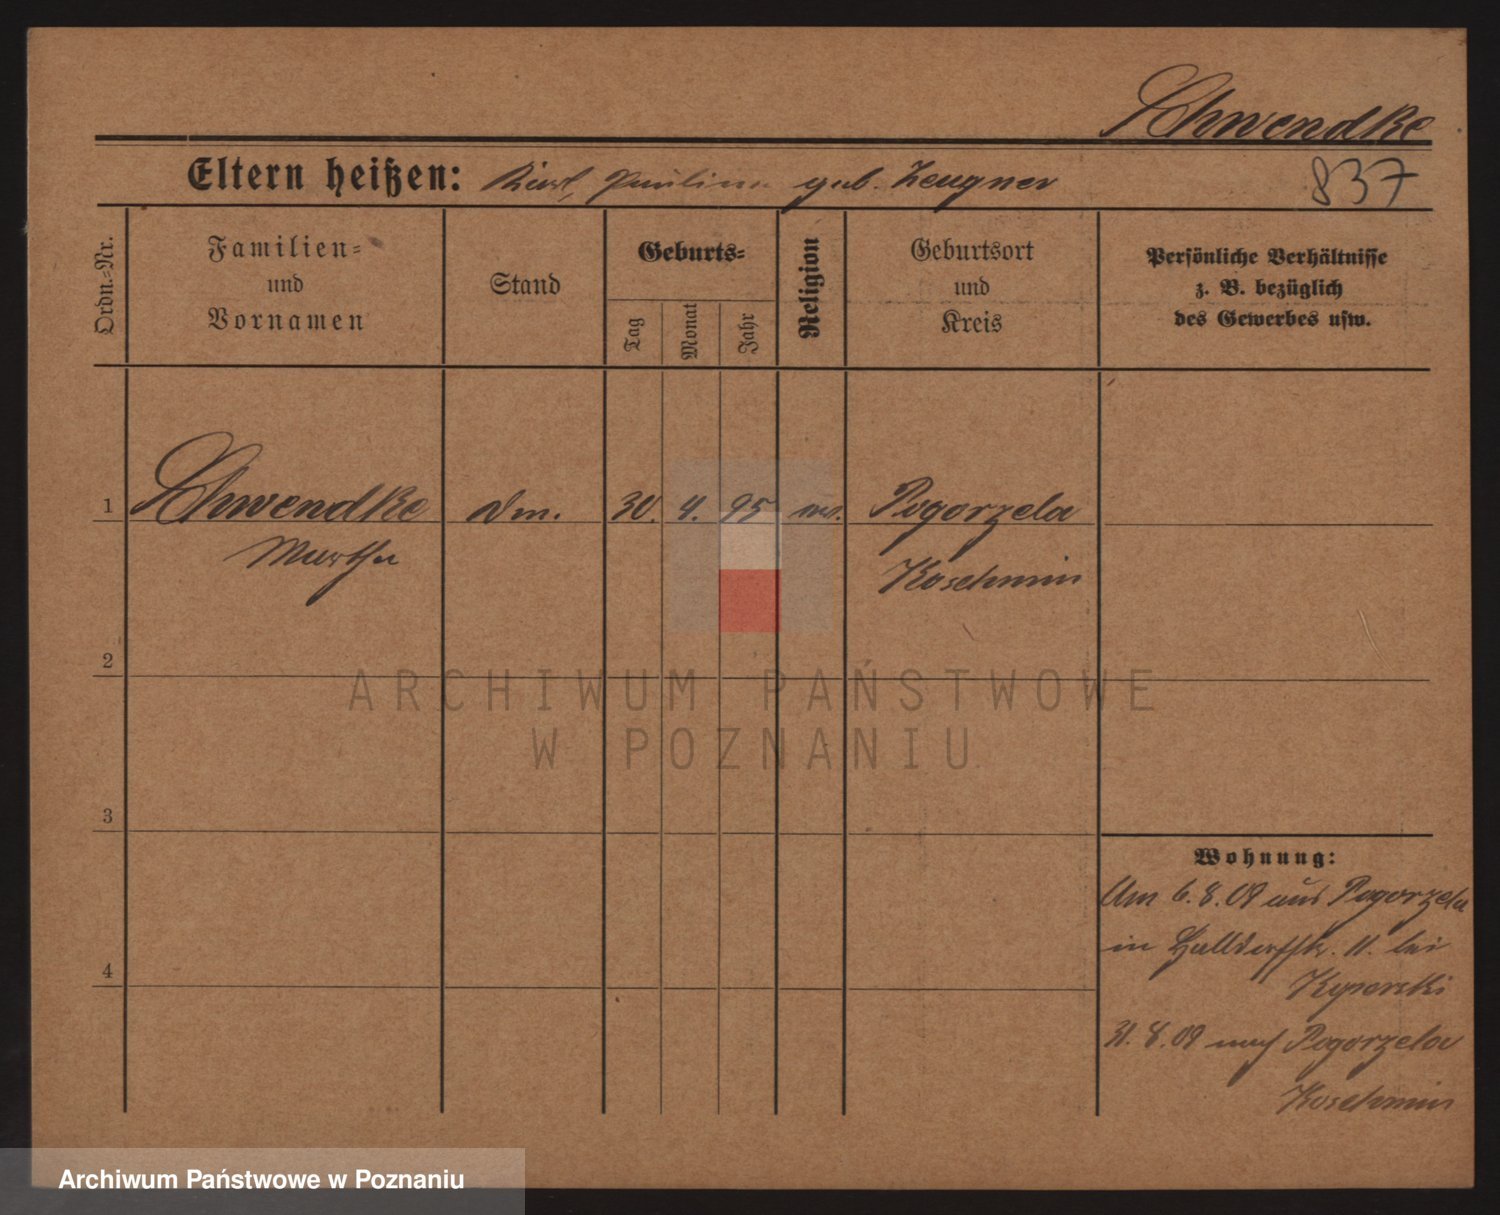 Schwendke
Eltern heißen: Karl, Pauline geb. Zeugner
837
Ordn.=Nr.
Familien=
und
Vornamen
Stand
Geburts=
Tag
Monat
Jahr
Religion
Geburtsort
und
Kreis
Persönliche Verhältnisse
z. B. bezüglich
des Gewerbes usw.
1 Schwendke 30. 4. 95 Pogorzela
Martha Koschmin
2
ARCHIWUM PAŃSTWOWE
W POZNANIU
3
Wohnung:
Am 6.8.09 aus Pogorzela
in 11. bei
4
31.8.09 nach Pogorzela
Koschmin
Archiwum Państwowe w Poznaniu